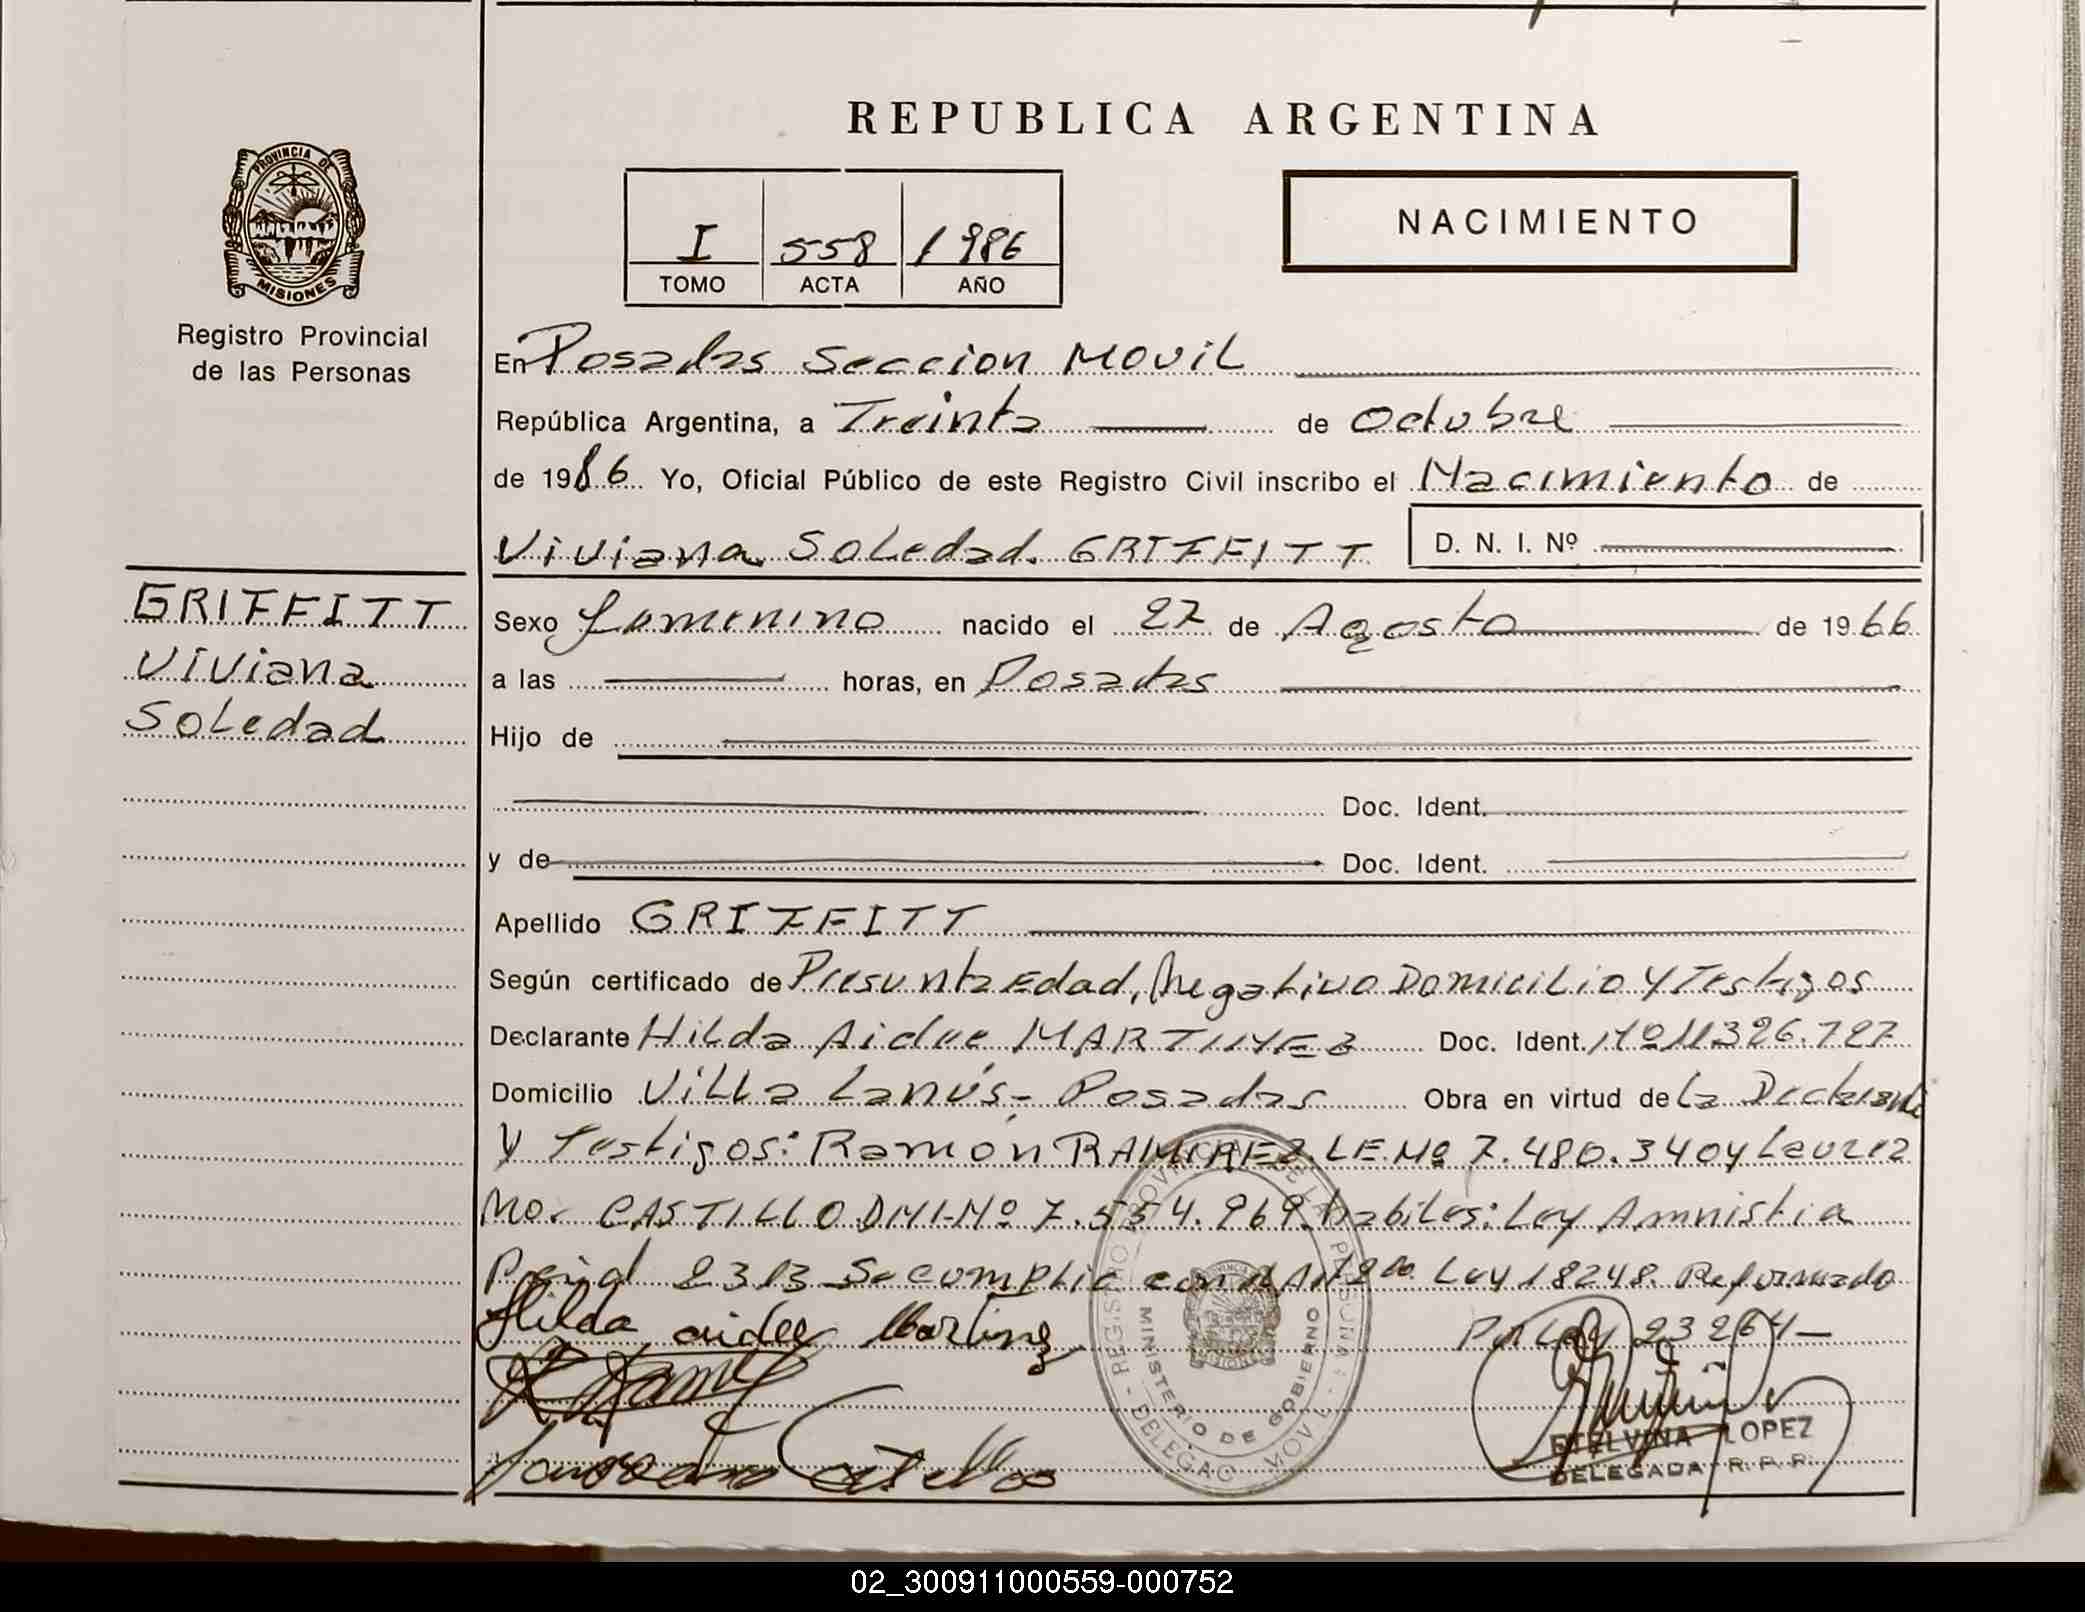 REPUBLICA ARGENTINA
PROVINCIA DE
MISIONES
Registro Provincial
de las Personas
I 558 1986
TOMO ACTA AÑO
NACIMIENTO
En Posadas Seccion Movil
República Argentina, a Treinta de Octubre
de 1986 Yo, Oficial Público de este Registro Civil inscribo el Nacimiento de
Viviana Soledad GRIFFITT D. N. I. Nº
GRIFFITT
Viviana
Soledad
Sexo Femenino nacido el 27 de Agosto de 1966
a las horas, en Posadas
Hijo de
Doc. Ident.
y de Doc. Ident.
Apellido GRIFFITT
Según certificado de Presunta Edad, Negativo Domicilio y Testigos
Declarante Hilda Aidee MARTINEZ Doc. Ident. Nº 11326.727
Domicilio Villa Lanús - Posadas Obra en virtud de La Declarante
y Testigos: Ramón RAMIREZ LE Nº 7.480.340 y Laurea
no. CASTILLO DNI-Nº 7.554.969. habiles: Ley Amnistia
2313 Se cumplio con el Art 2do Ley 18248. Reformado
Por Ley 23264-
Hilda aidee Martinez
Castillo
REGISTRO PROVINCIAL DE LAS PERSONAS - DELEGAC. MOVIL -
MINISTERIO DE GOBIERNO
ETELVINA LOPEZ
DELEGADA R. P. P.
02_300911000559-000752